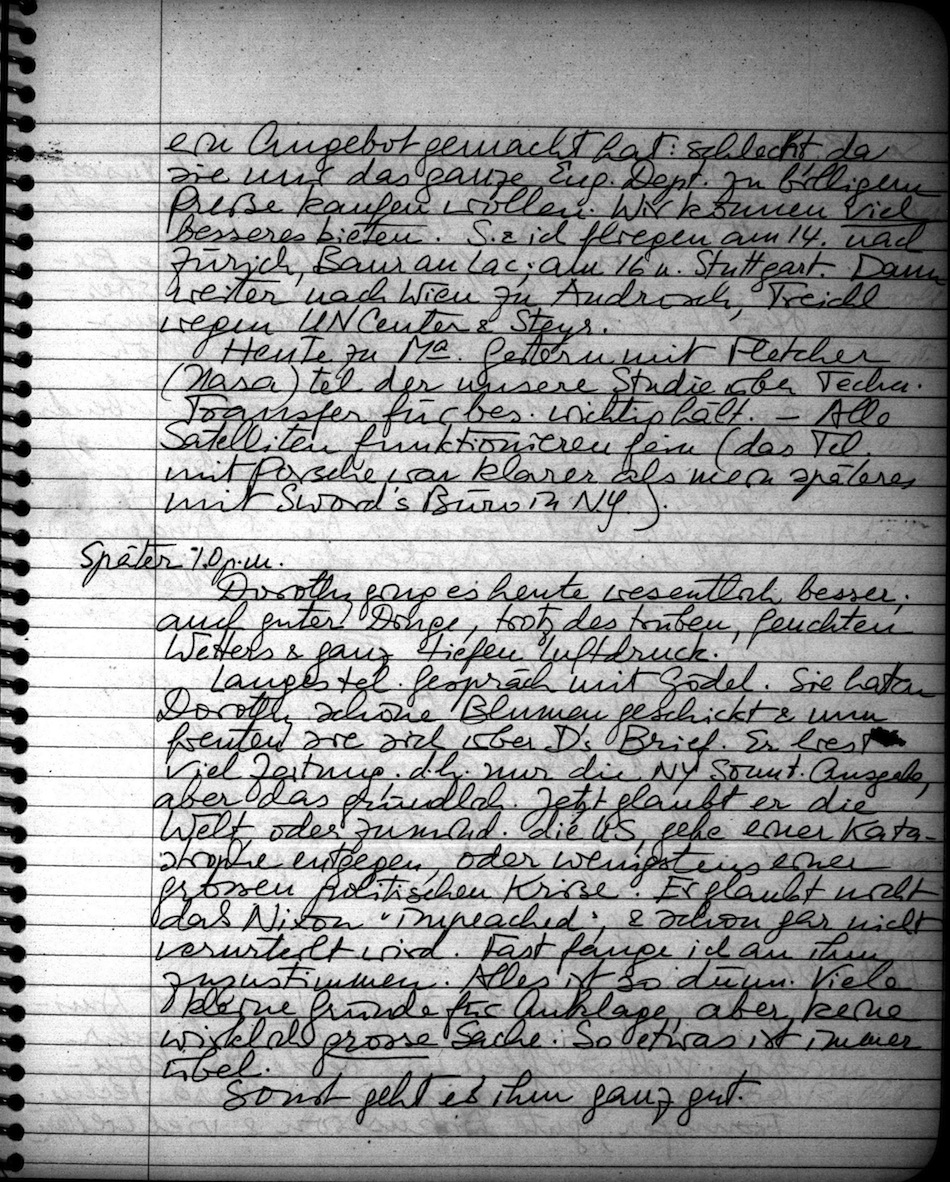 ein Angebot gemacht hat: schlecht da
sie nur das ganze Eng. Dept. zu billigem
Preise kaufen wollen. Wir können viel
besseres bieten. S. & ich fliegen am 14. nach
Zürich, Baur au Lac; am 16 n. Stuttgart. Dann
weiter nach Wien zu Androsch, Treichl
wegen UN Center & Steyr.
Heute zu Ma. Gestern mit Fletcher
(Nasa) tel der unsere Studie über Techn.
Transfer für bes. wichtig hält. – Alle
Satelliten funktionieren fein (das Tel.
mit Porsche war klarer als mein späteres
mit Sword's Büro in NY.).
Später 10 p.m.
Dorothy ging es heute wesentlich besser;
auch guter Dinge, trotz des trüben, feuchten
Wetters & ganz tiefen Luftdruck.
Langes tel. Gespräch mit Gödel. Sie hatten
Dorothy schöne Blumen geschickt & nun
freuten sie sich über D's Brief. Er liest
viel Zeitung. d.h. nur die NY Sonnt. Ausgabe,
aber das gründlich. Jetzt glaubt er die
Welt, oder zumind. die US, gehe einer Kata-
strophe entgegen, oder wenigstens einer
grossen politischen Krise. Er glaubt nicht
das Nixon "impeached", & schon gar nicht
verurteilt wird. Fast fange ich an ihm
zuzustimmen. Alles ist so dünn. Viele
kleine Gründe für Anklage, aber keine
wirklich grosse Sache. So etwas ist immer
übel.
Sonst geht es ihm ganz gut.